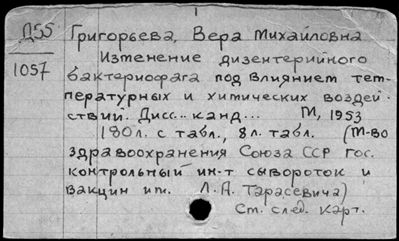 Д55 Григорьева, Вера Михайловна
1057 Изменение дизентерийного
бактериофага под влиянием тем-
пературных и химических воздей-
ствий. Дисс... канд... М, 1953
180л. с табл., 8л. табл. (М-во
здравоохранения Союза ССР Гос.
контрольный ин-т сывороток и
вакцин им. Л.А. Тарасевича)
См. след. карт.